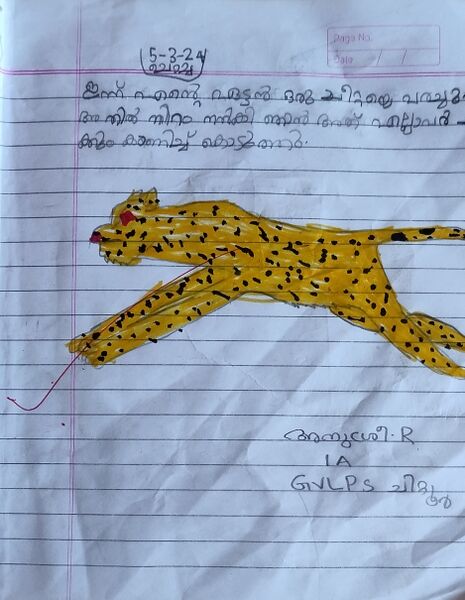 Page No.
Date / /
5-3-24
ചൊവ്വ
ഇന്ന് എന്റെ ഏട്ടൻ ഒരു ചീറ്റയെ വരച്ചു.
അതിൽ നിറം നൽകി ഞാൻ അത് എല്ലാവർ
ക്കും കാണിച്ച് കൊടുത്തു.
അനുശ്രീ.R
1A
GVLPS ചിറ്റൂർ